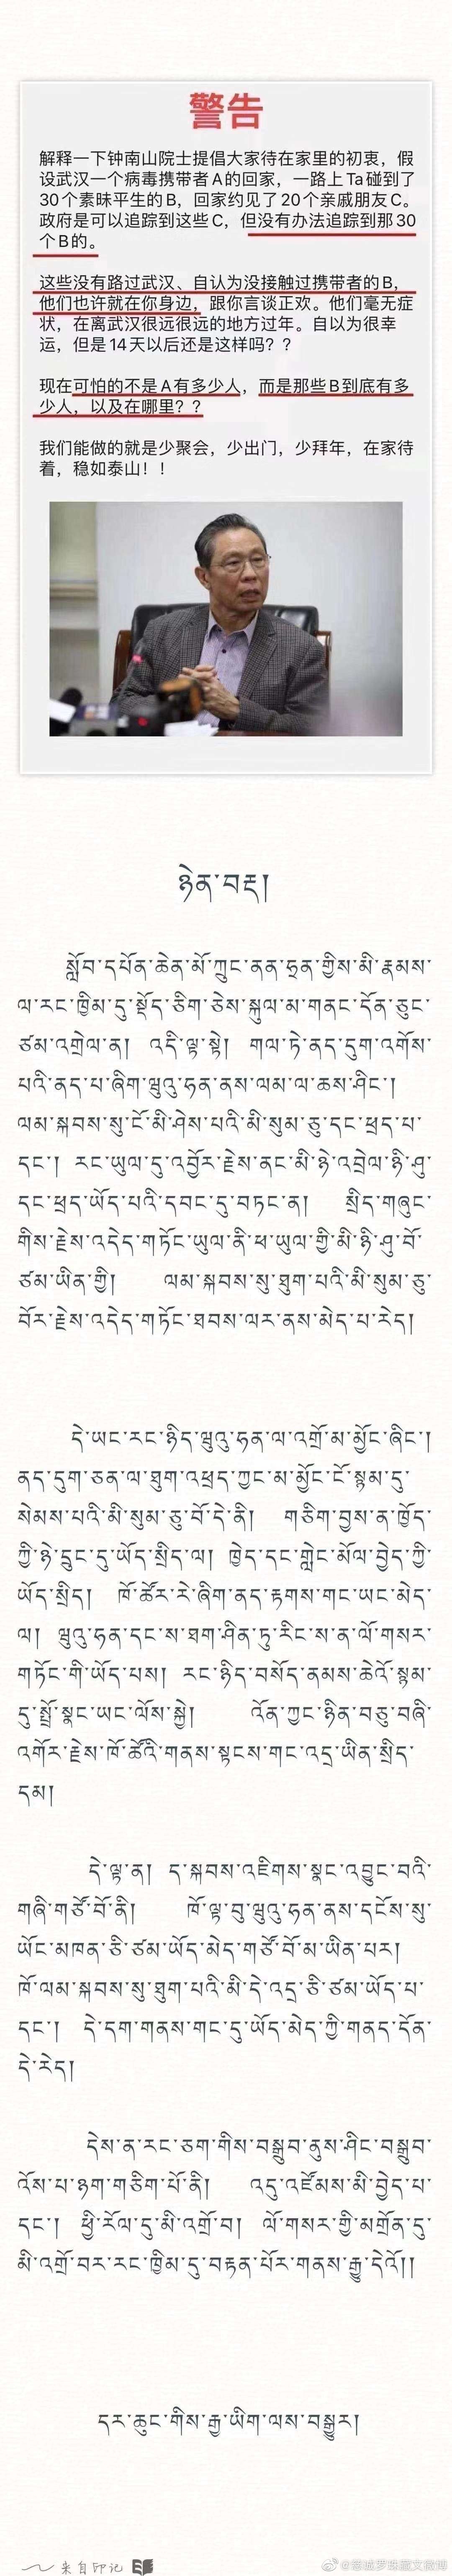 警告
解释一下钟南山院士提倡大家待在家里的初衷，假
设武汉一个病毒携带者A的回家，一路上Ta碰到了
30个素昧平生的B，回家约见了20个亲戚朋友C。
政府是可以追踪到这些C，但没有办法追踪到那30
个B的。
这些没有路过武汉、自认为没接触过携带者的B，
他们也许就在你身边，跟你言谈正欢。他们毫无症
状，在离武汉很远很远的地方过年。自以为很幸
运，但是14天以后还是这样吗？？
现在可怕的不是A有多少人，而是那些B到底有多
少人，以及在哪里？？
我们能做的就是少聚会，少出门，少拜年，在家待
着，稳如泰山！！
ཉེན་བརྡ།
སློབ་དཔོན་ཆེན་མོ་ཀྲུང་ནན་ཧྲན་གྱིས་མི་རྣམས་
ལ་རང་ཁྱིམ་དུ་སྡོད་ཅིག་ཅེས་སྐུལ་མ་གནང་དོན་ཅུང་
ཙམ་འགྲེལ་ན། འདི་ལྟ་སྟེ། གལ་ཏེ་ནད་དུག་འགོས་
པའི་ནད་པ་ཞིག་ཝུའུ་ཧན་ནས་ལམ་ལ་ཆས་ཤིང་།
ལམ་སྐབས་སུ་ངོ་མི་ཤེས་པའི་མི་སུམ་ཅུ་དང་ཕྲད་པ་
དང་། རང་ཡུལ་དུ་འབྱོར་རྗེས་ནང་མི་ཉེ་འབྲེལ་ཉི་ཤུ་
དང་ཕྲད་ཡོད་པའི་དབང་དུ་བཏང་ན། སྲིད་གཞུང་
གིས་རྗེས་འདེད་གཏོང་ཡུལ་ནི་ཕ་ཡུལ་གྱི་མི་ཉི་ཤུ་བོ་
ཙམ་ཡིན་གྱི། ལམ་སྐབས་སུ་ཐུག་པའི་མི་སུམ་ཅུ་
བོར་རྗེས་འདེད་གཏོང་ཐབས་ལར་ནས་མེད་པ་རེད།
དེ་ཡང་རང་ཉིད་ཝུའུ་ཧན་ལ་འགྲོ་མ་མྱོང་ཞིང་།
ནད་དུག་ཅན་ལ་ཐུག་འཕྲད་ཀྱང་མ་མྱོང་ངོ་སྙམ་དུ་
སེམས་པའི་མི་སུམ་ཅུ་བོ་དེ་ནི། གཅིག་བྱས་ན་ཁྱོད་
ཀྱི་ཉེ་དྲུང་དུ་ཡོད་སྲིད་ལ། ཁྱེད་དང་གླེང་མོལ་བྱེད་ཀྱི་
ཡོད་སྲིད། ཁོ་ཚོར་རེ་ཞིག་ནད་རྟགས་གང་ཡང་མེད་
ལ། ཝུའུ་ཧན་དང་ས་ཐག་ཤིན་ཏུ་རིང་ས་ན་ལོ་གསར་
གཏོང་གི་ཡོད་པས། རང་ཉིད་བསོད་ནམས་ཆེའོ་སྙམ་
དུ་སྤྲོ་སྣང་ཡང་ལོས་སྐྱེ། འོན་ཀྱང་ཉིན་བཅུ་བཞི་
འགོར་རྗེས་ཁོ་ཚོའི་གནས་སྟངས་གང་འདྲ་ཡིན་སྲིད་
དམ།
དེ་ལྟ་ན། ད་སྐབས་འཇིགས་སྣང་འབྱུང་བའི་
གཞི་གཙོ་བོ་ནི། ཁོ་ལྟ་བུ་ཝུའུ་ཧན་ནས་དངོས་སུ་
ཡོང་མཁན་ཅི་ཙམ་ཡོད་མེད་གཙོ་བོ་མ་ཡིན་པར།
ཁོ་ལམ་སྐབས་སུ་ཐུག་པའི་མི་དེ་འདྲ་ཅི་ཙམ་ཡོད་པ་
དང་། དེ་དག་གནས་གང་དུ་ཡོད་མེད་ཀྱི་གནད་དོན་
དེ་རེད།
དེས་ན་རང་ཅག་གིས་བསྒྲུབ་ནུས་ཤིང་བསྒྲུབ་
འོས་པ་ཧག་གཅིག་པོ་ནི། འདུ་འཛོམས་མི་བྱེད་པ་
དང་། ཕྱི་རོལ་དུ་མི་འགྲོ་བ། ལོ་གསར་གྱི་མགྲོན་དུ་
མི་འགྲོ་བར་རང་ཁྱིམ་དུ་བརྟན་པོར་གནས་རྒྱུ་དེའོ།།
དར་ཆུང་གིས་རྒྱ་ཡིག་ལས་བསྒྱུར།
来自印记